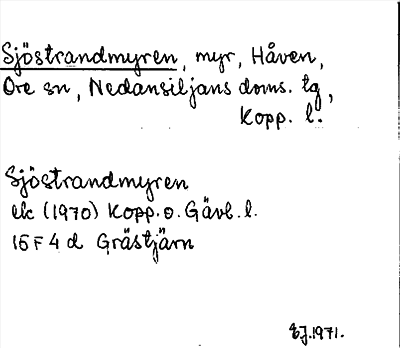 Sjöstrandmyren, myr, Håven,
Ore sn, Nedansiljans doms. tg,
Kopp. l.
Sjöstrandmyren
ek (1970) Kopp. o. Gävl. l.
15 F 4 d Grästjärn
EJ. 1971.